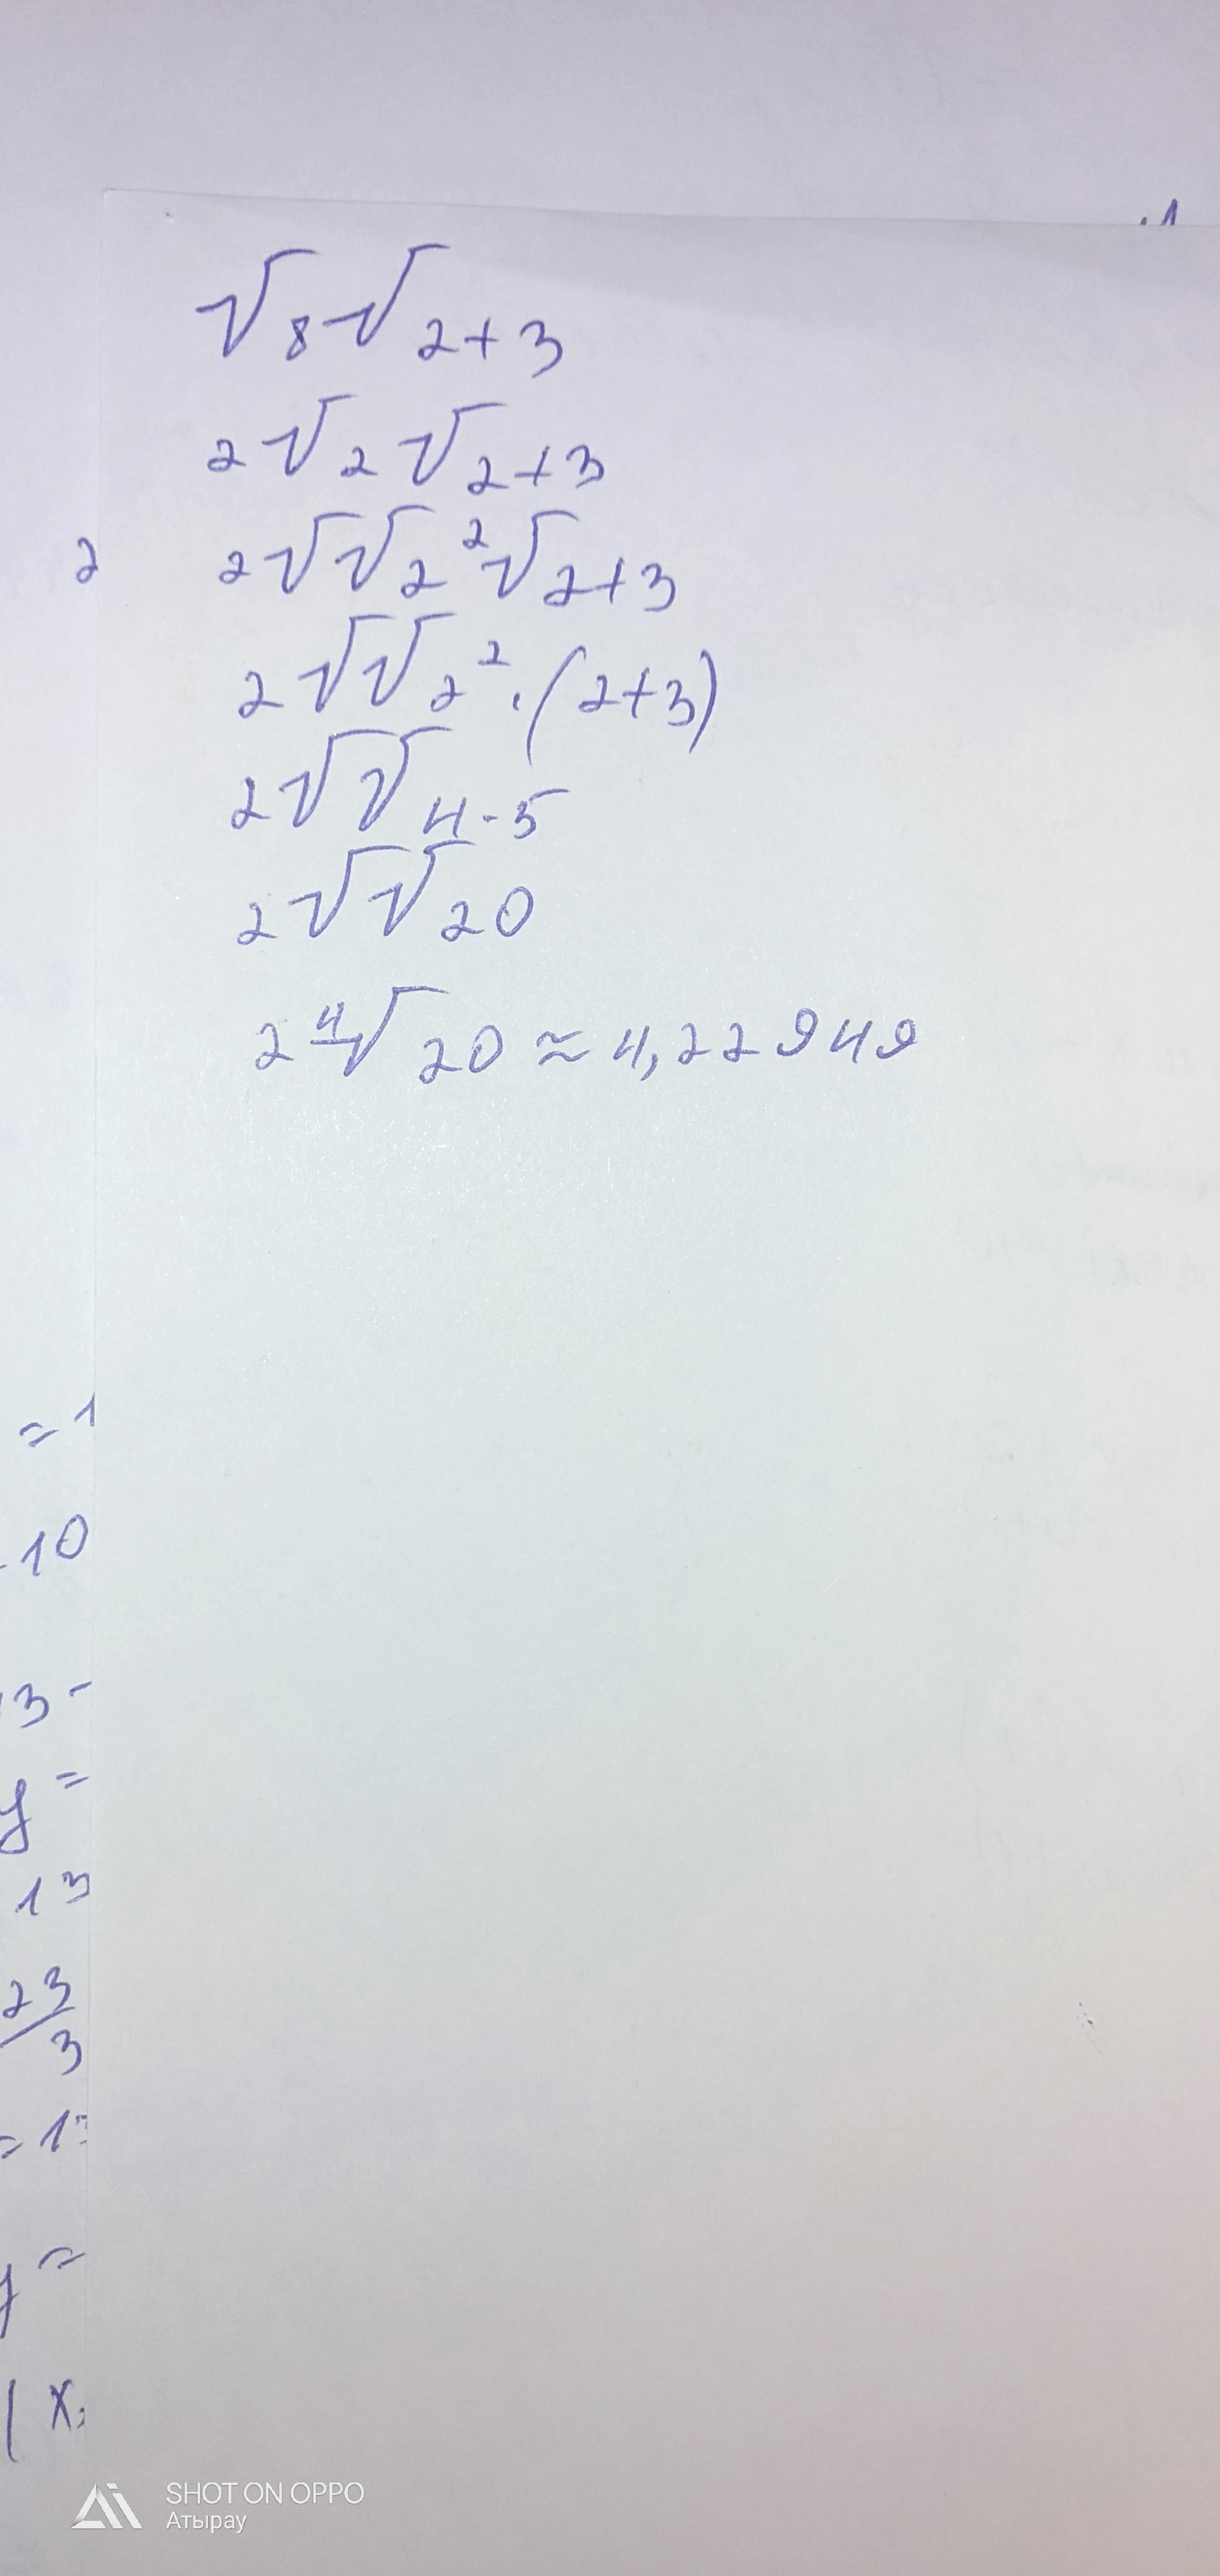 .1
√8√2+3
2√2√2+3
2 2√√2²√2+3
2√√2².(2+3)
2√√4·5
2√√20
2⁴√20≈4,22949
=1
10
3-
y=
13
23/3
=1
=
x
SHOT ON OPPO
Атырау